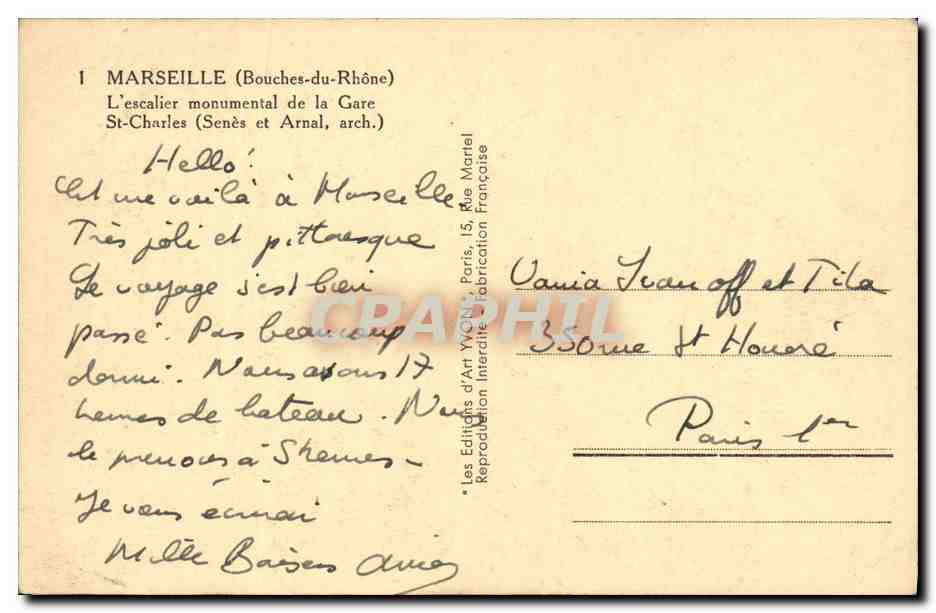 1 MARSEILLE (Bouches-du-Rhône)
L'escalier monumental de la Gare
St-Charles (Senès et Arnal, arch.)
Hello!
Et me voilà à Marseille.
Très joli et pittoresque
Le voyage s'est bien
passé. Pas beaucoup
dormi. Nous avons 17
heures de bateau. Nous
le prenons à
Je vous écrirai
Mille Baisers
* Les Editions d'Art YVON", Paris, 15, Rue Martel
Reproduction Interdite - Fabrication Française
Vania Ivanoff et Tila
350 rue St Honoré
Paris 1er
CPARPHIL